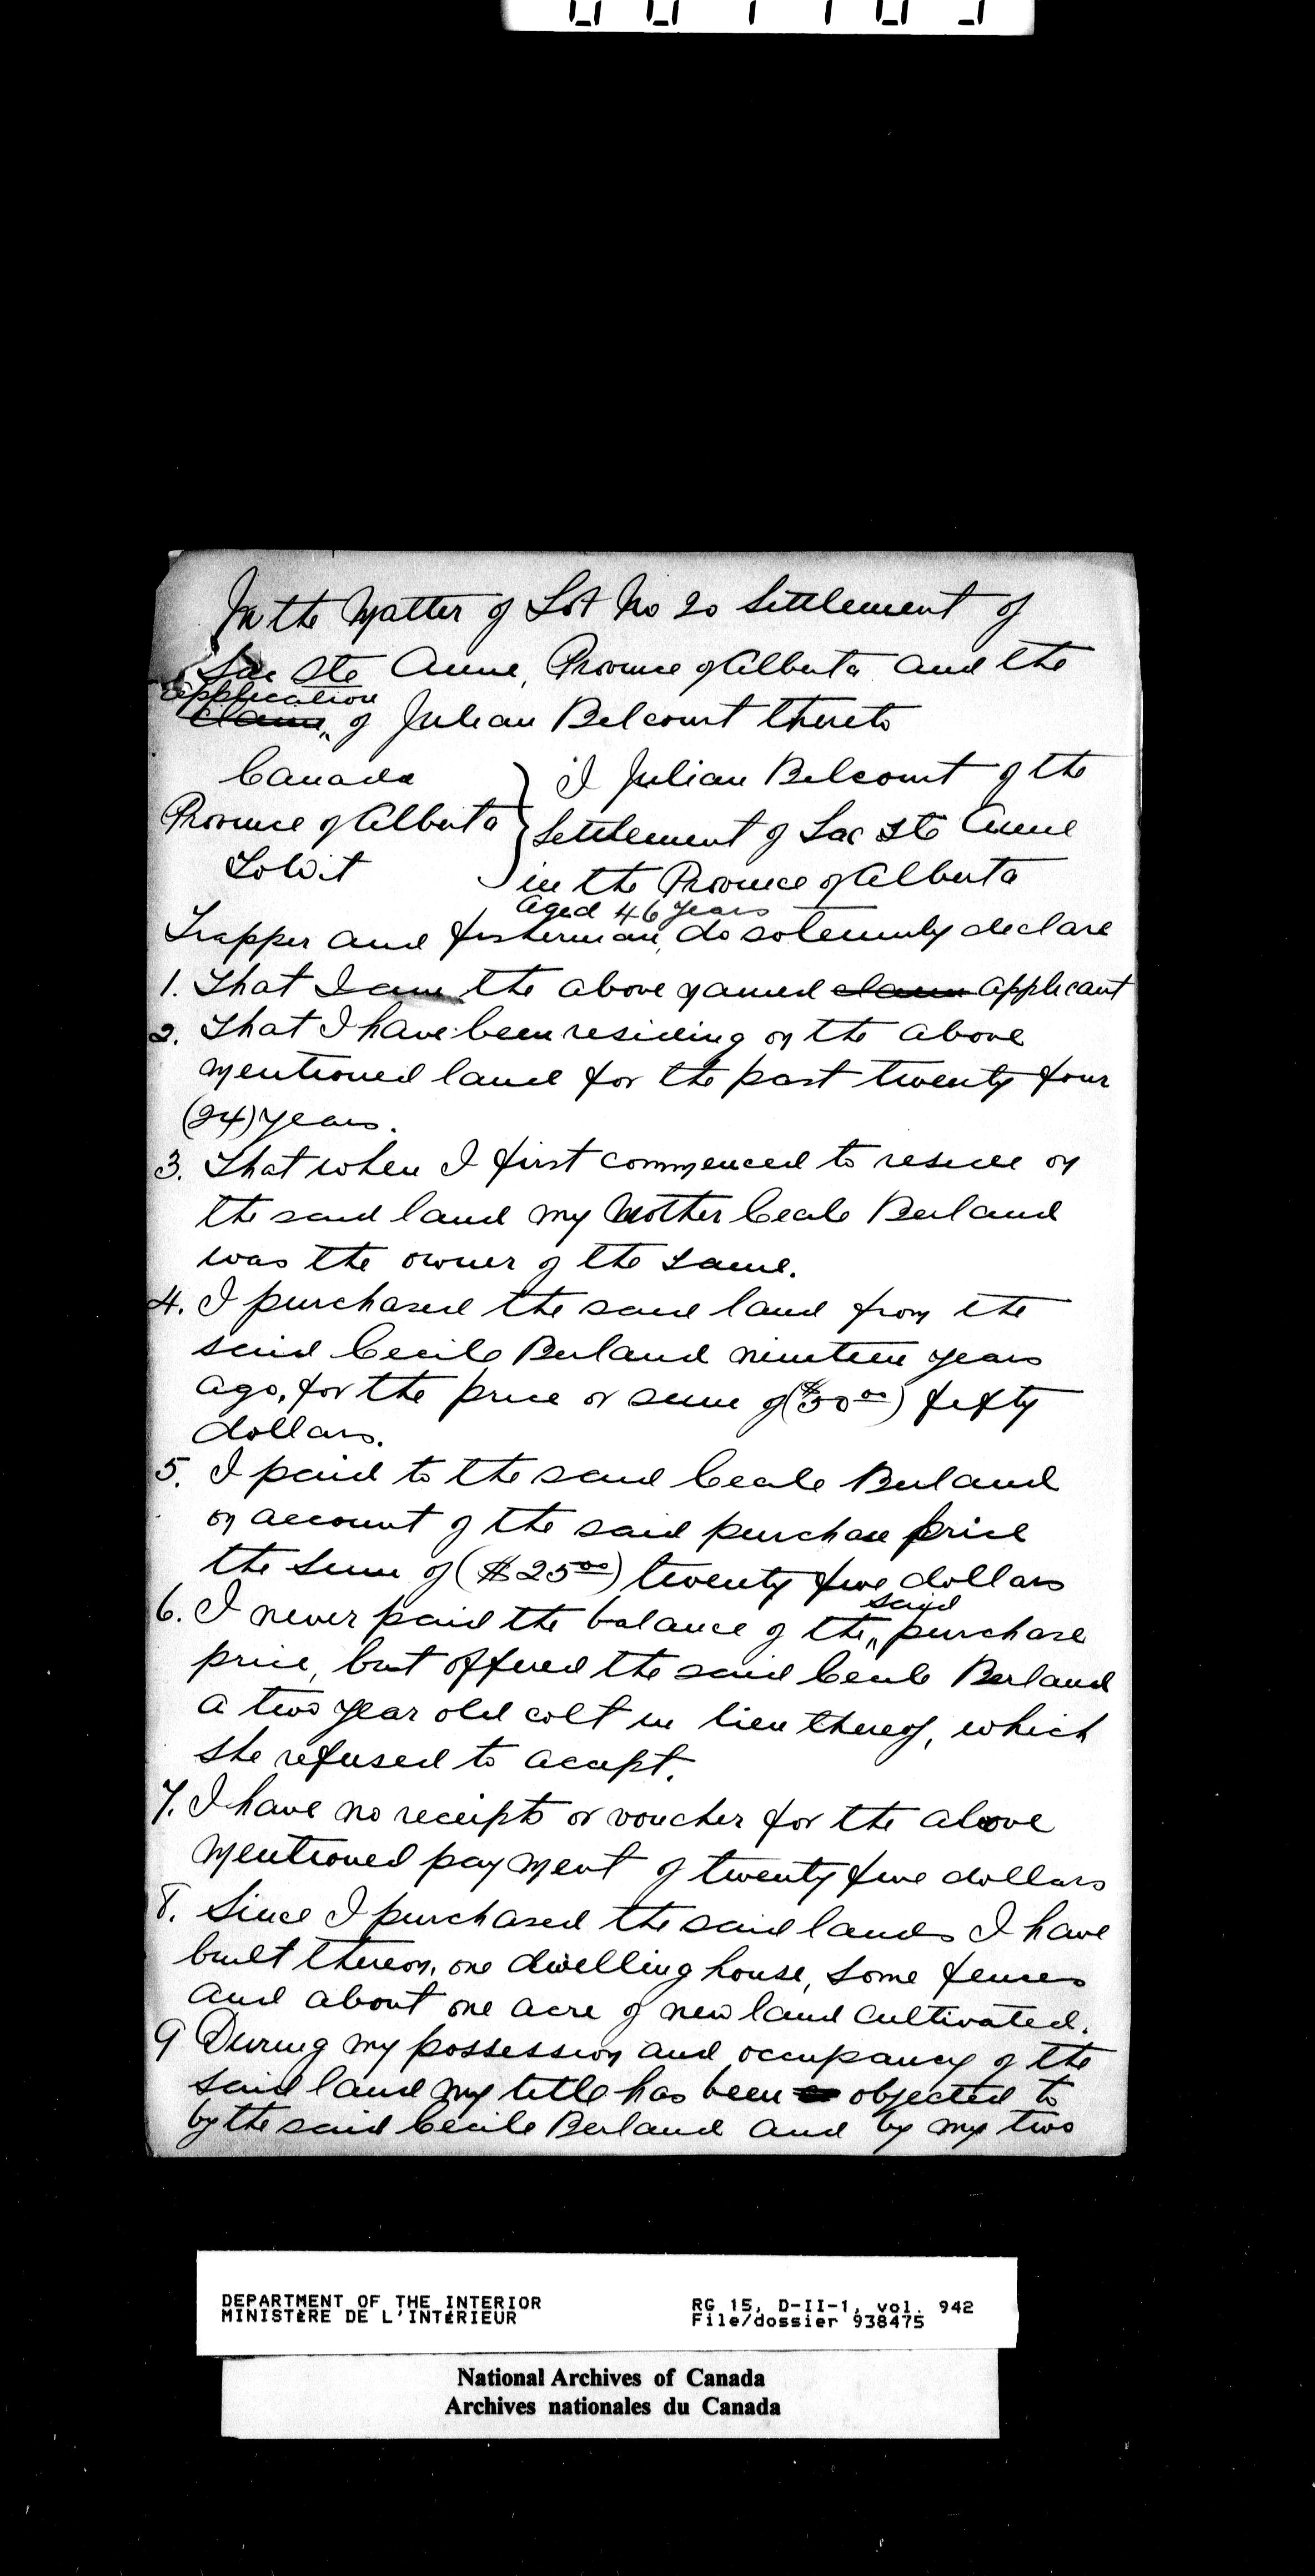 In the Matter of Lot No 20 Settlement of
Lac Ste Anne, Province of Alberta and the
application
claim of Julian Belcourt thereto
Canada
Province of Alberta
To Wit
I Julian Belcourt of the
Settlement of Lac Ste Anne
in the Province of Alberta
aged 46 years
Trapper and fisherman, do solemnly declare
1. That I am the above named claim applicant
2. That I have been residing on the above
mentioned land for the past twenty four
(24) years.
3. That when I first commenced to reside on
the said land my Mother Cecile Berland
was the owner of the same.
4. I purchased the said land from the
said Cecile Berland nineteen years
ago, for the price or sum of ($50 00) fifty
dollars.
5. I paid to the said Cecile Berland
on account of the said purchase price
the sum of ($25 00) twenty five dollars
said
6. I never paid the balance of the purchase
price, but offered the said Cecile Berland
a two year old colt in lieu thereof, which
she refused to accept.
7. I have no receipts or voucher for the above
mentioned payment of twenty five dollars
8. Since I purchased the said lands I have
built thereon, one dwelling house, some fences
and about one acre of new land cultivated.
9 During my possession and occupancy of the
said land my title has been objected to
by the said Cecile Berland and by my two
DEPARTMENT OF THE INTERIOR
MINISTÈRE DE L'INTÉRIEUR
RG 15, D-II-1, vol. 942
File/dossier 938475
National Archives of Canada
Archives nationales du Canada